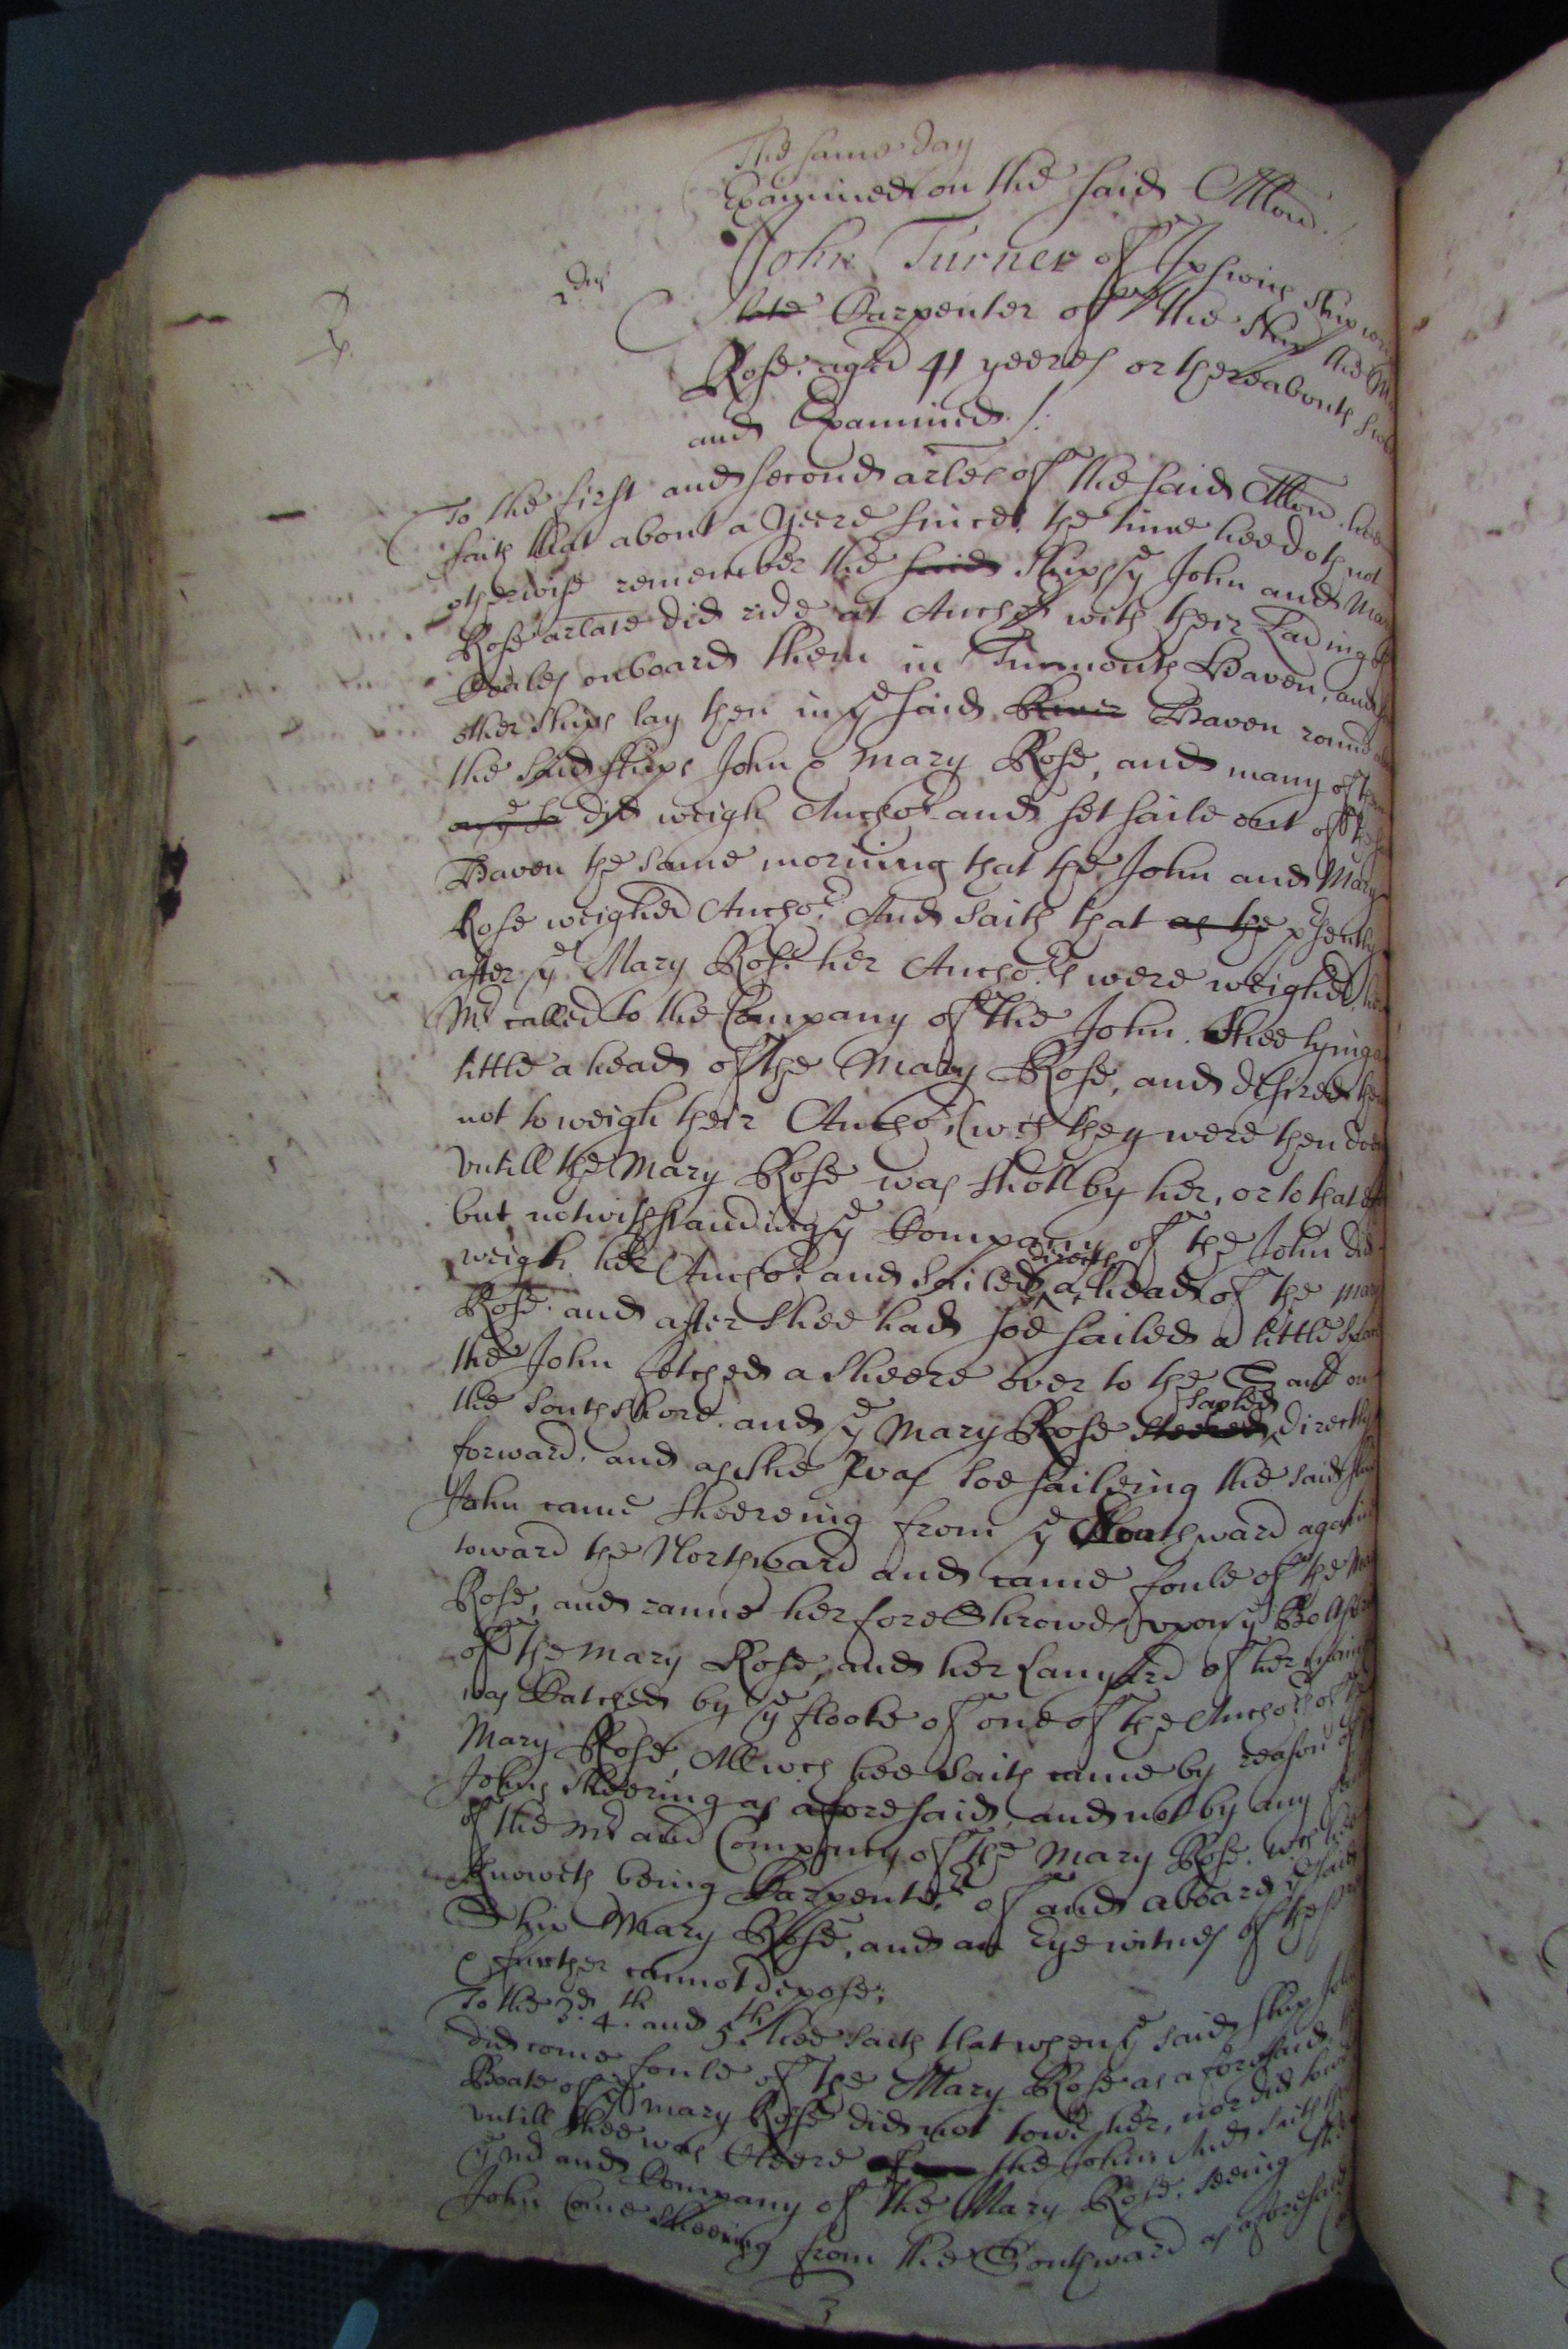 The same day
Examined on the said Allon.
2dus
John Turner of Ipswich Ship
late Carpenter of the Ship the
Rose, aged 41 yeeres or thereabouts
and Examined ./:
To the first and second arles of the said Allon. hee
saith that about a yeere since, the time hee doth not
otherwise remember the said Shipps ye John and Mary
Rose arlate did ride at Anchor with their Lading of
Coales onboard them in Tinmouth Haven, and
other ships lay then in ye said River Haven round
the said shipps John & Mary Rose, and many of
did weigh Anchor and set saile out of the
Haven the same morning that the John and Mary
Rose weighed Anchor. And saith that as the presently
after ye Mary Rose her Anchors were weighed
Mr called to the Company of the John. Shee lying
little a head of the Mary Rose, and desired
not to weigh their Anchor, (wch they were then
vntill the Mary Rose was shott by her, or to that
but notwithstanding ye Company of the John did
weigh her Anchor and sailed directly a head of the Mary
Rose. and after shee had soe sailed a little
the John fetched a sheere over to the Sand on
the south shore. and ye Mary Rose steered sayled directly
forward. and as she was soe saileing the said
John came sheereing from ye Southward againe
toward the Northward and came foule of the
Rose, and ranne her fore Shrowds vpon ye
of the Mary Rose, and her Lanyard of her
was catched by ye flooke of one of the Anchors of
Mary Rose, All wch hee saith came by reason of
Johns sheering as aforesaid, and not by any
of the Mr and Company of the Mary Rose. wch hee
knoweth being Carpenter of and aboard ye said
Ship Mary Rose, and an Eye witnes of the
& further cannot depose;
To the 3d. 4th. and 5th. hee saith that when ye said ship
did come foule of the Mary Rose as aforesaid.
Boate of ye Mary Rose did not towe her, nor did
vntill shee was cleere the John. And saith
ye Mr and Company of the Mary Rose. seeing the
John come sheering from the Southward as aforesaid